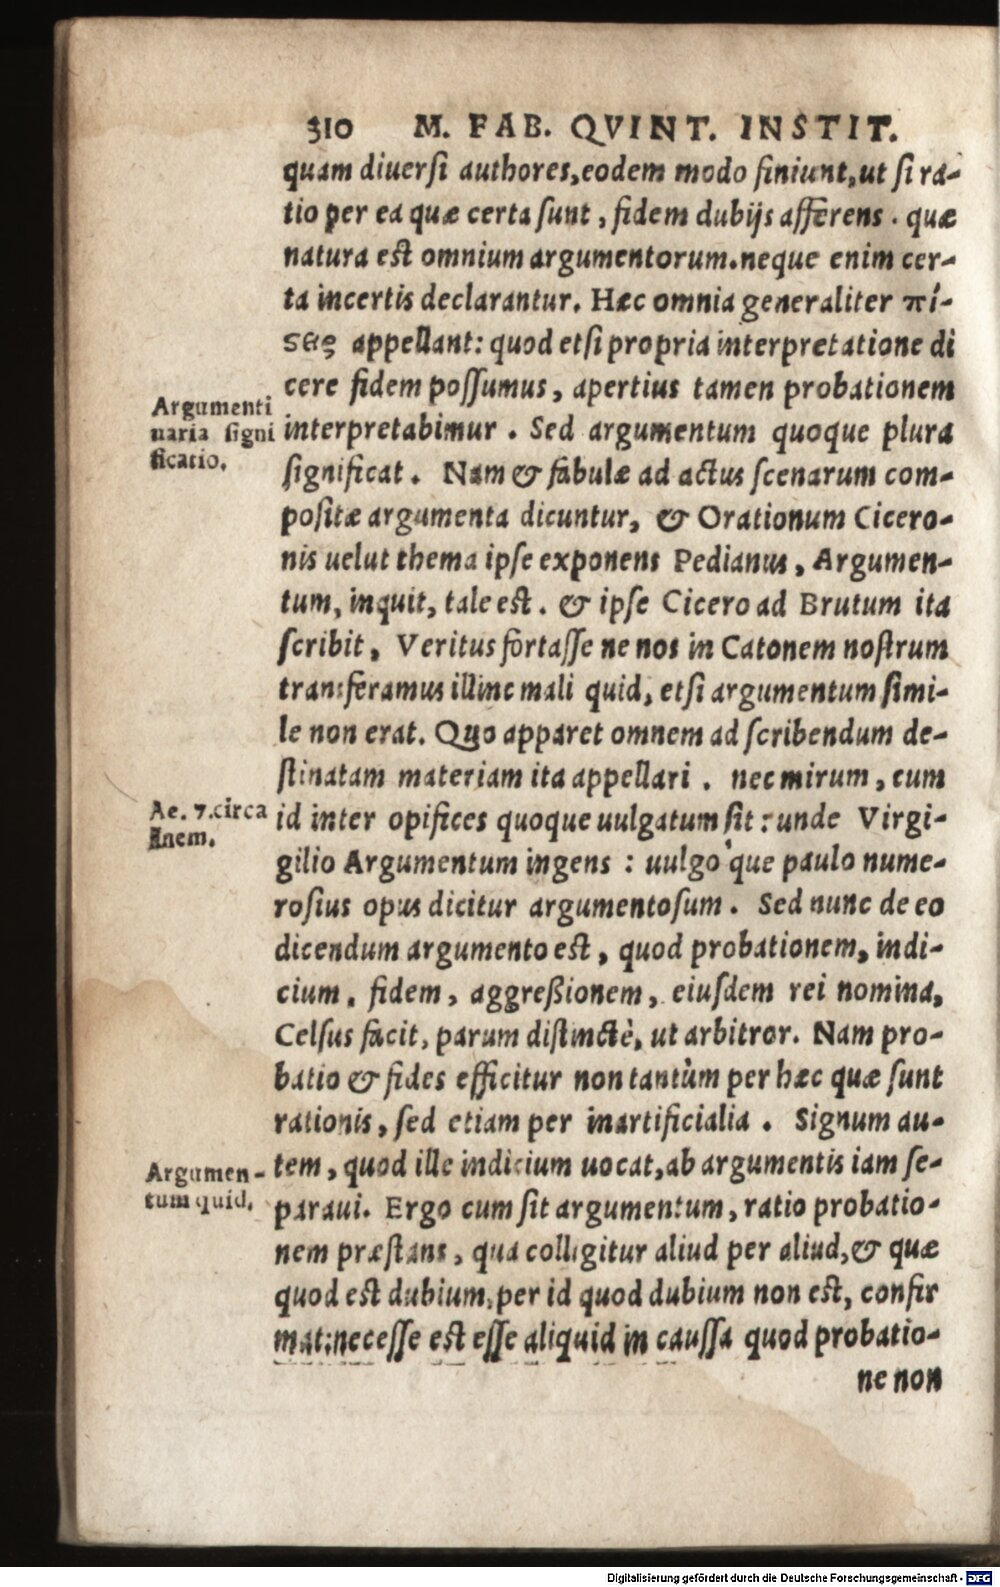 310 M. FAB. QVINT. INSTIT.
quam diuerſi authores, eodem modo finiunt, ut ſi ra-
tio per ea quæ certa ſunt, fidem dubijs afferens. quæ
natura est omnium argumentorum. neque enim cer-
ta incertis declarantur. Hæc omnia generaliter πί-
ςεις appellant: quod etſi propria interpretatione di
cere fidem poſſumus, apertius tamen probationem
Argumenti
uaria ſigni
ficatio.
interpretabimur. Sed argumentum quoque plura
ſignificat. Nam & fabulæ ad actus ſcenarum com-
poſitæ argumenta dicuntur, & Orationum Cicero-
nis uelut thema ipſe exponens Pedianus, Argumen-
tum, inquit, tale est. & ipſe Cicero ad Brutum ita
ſcribit, Veritus fortaſſe ne nos in Catonem noſtrum
transferamus illinc mali quid, etſi argumentum ſimi-
le non erat. Quo apparet omnem ad ſcribendum de-
ſtinatam materiam ita appellari. nec mirum, cum
Ae. 7. circa
finem.
id inter opifices quoque uulgatum ſit: unde Virgi-
gilio Argumentum ingens: uulgo'que paulo nume-
roſius opus dicitur argumentoſum. Sed nunc de eo
dicendum argumento est, quod probationem, indi-
cium, fidem, aggreßionem, eiuſdem rei nomina,
Celſus facit, parum diſtinctè, ut arbitror. Nam pro-
batio & fides efficitur non tantùm per hæc quæ ſunt
rationis, ſed etiam per inartificialia. Signum au-
Argumen-
tum quid.
tem, quod ille indicium uocat, ab argumentis iam ſe-
paraui. Ergo cum ſit argumentum, ratio probatio-
nem præſtans, qua colligitur aliud per aliud, & quæ
quod est dubium, per id quod dubium non est, confir
mat: neceſſe est eſſe aliquid in cauſſa quod probatio-
ne non
Digitalisierung gefördert durch die Deutsche Forschungsgemeinschaft - DFG